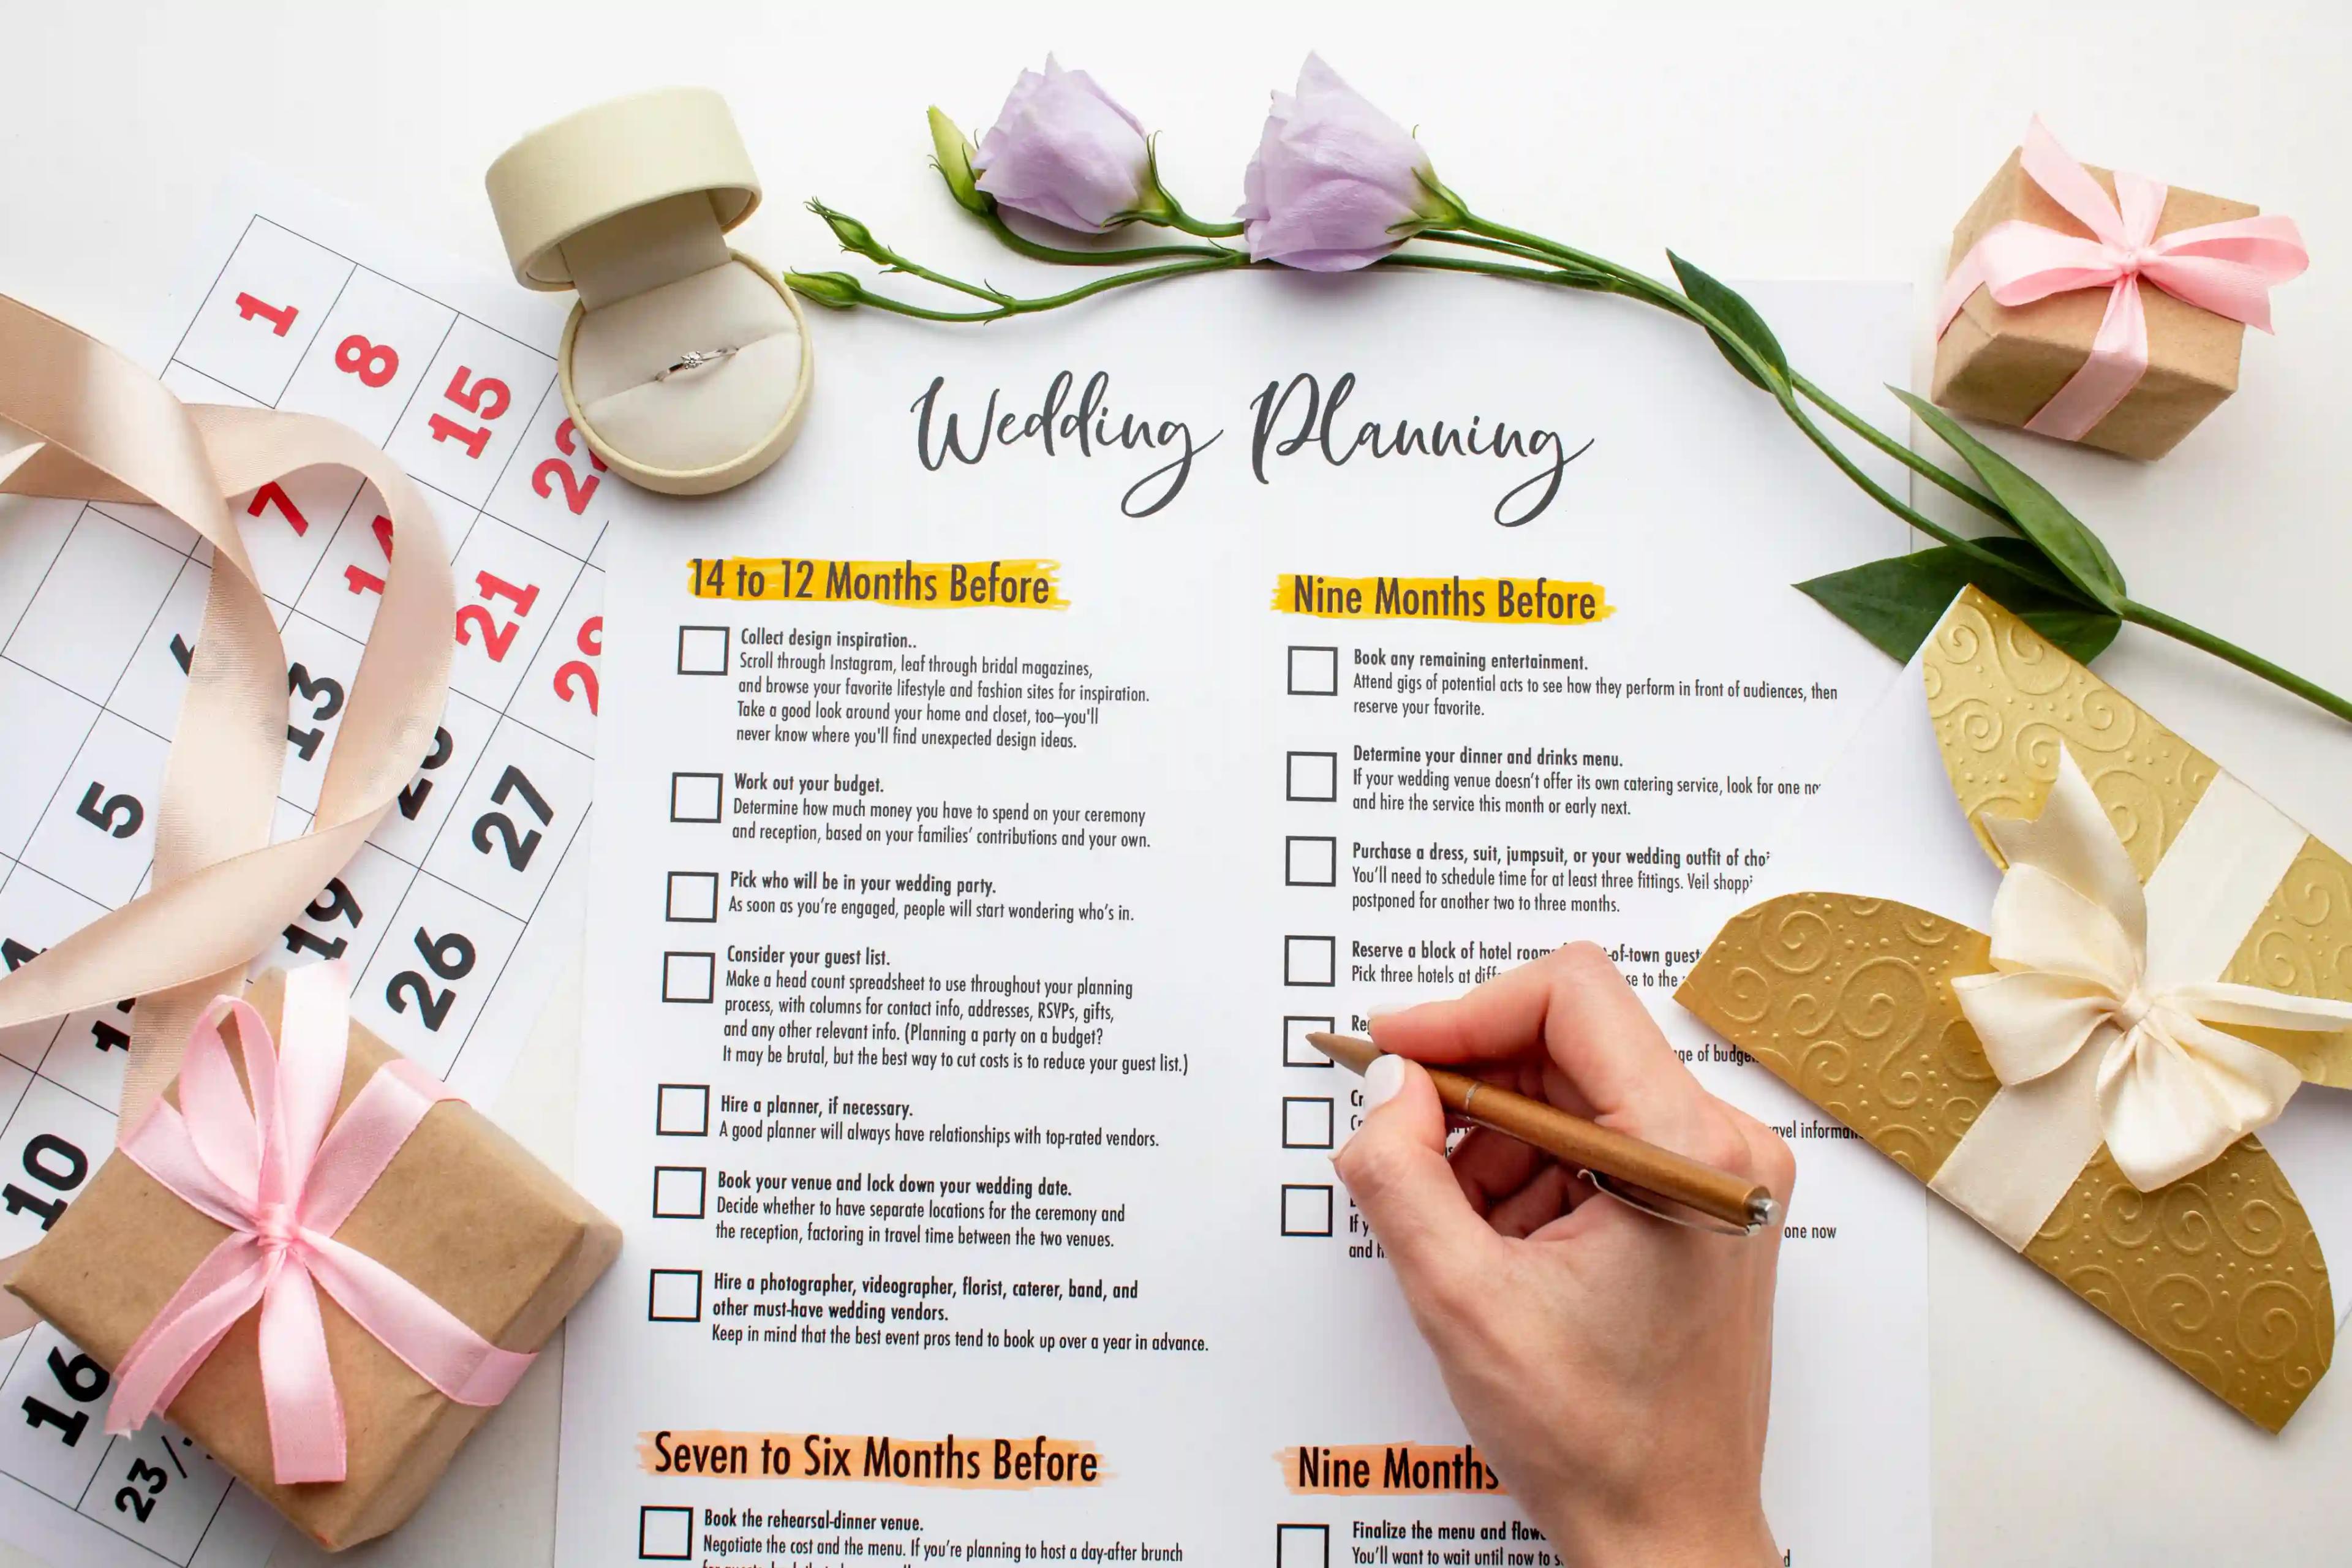 Wedding Planning
14 to 12 Months Before
Collect design inspiration..
Scroll through Instagram, leaf through bridal magazines,
and browse your favorite lifestyle and fashion sites for inspiration.
Take a good look around your home and closet, too—you'll
never know where you'll find unexpected design ideas.
Work out your budget.
Determine how much money you have to spend on your ceremony
and reception, based on your families' contributions and your own.
Pick who will be in your wedding party.
As soon as you're engaged, people will start wondering who's in.
Consider your guest list.
Make a head count spreadsheet to use throughout your planning
process, with columns for contact info, addresses, RSVPs, gifts,
and any other relevant info. (Planning a party on a budget?
It may be brutal, but the best way to cut costs is to reduce your guest list.)
Hire a planner, if necessary.
A good planner will always have relationships with top-rated vendors.
Book your venue and lock down your wedding date.
Decide whether to have separate locations for the ceremony and
the reception, factoring in travel time between the two venues.
Hire a photographer, videographer, florist, caterer, band, and
other must-have wedding vendors.
Keep in mind that the best event pros tend to book up over a year in advance.
Seven to Six Months Before
Book the rehearsal-dinner venue.
Negotiate the cost and the menu. If you're planning to host a day-after brunch
Nine Months Before
Book any remaining entertainment.
Attend gigs of potential acts to see how they perform in front of audiences, then
reserve your favorite.
Determine your dinner and drinks menu.
If your wedding venue doesn't offer its own catering service, look for one
and hire the service this month or early next.
Purchase a dress, suit, jumpsuit, or your wedding outfit of
You'll need to schedule time for at least three fittings. Veil
postponed for another two to three months.
Reserve a block of hotel -of-town
Pick three hotels at to the
of
If
and
one now
Nine Months
Finalize the menu and
You'll want to wait until now to
1
8
15
7
21
13
27
5
19
26
10
16
23/